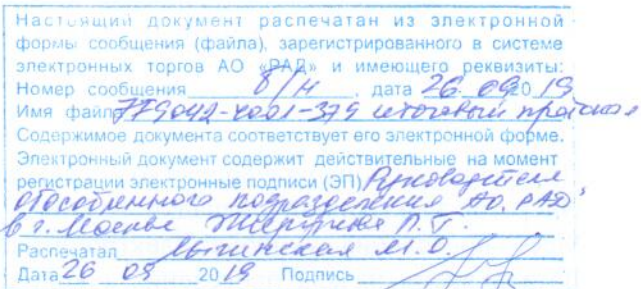 Настоящий документ распечатан из электронной
формы сообщения (файла), зарегистрированного в системе
электронных торгов АО «РАД» и имеющего реквизиты:
Номер сообщения б/н , дата 26. 20 19
Имя файла 779042- -379 итоговый протокол
Содержимое документа соответствует его электронной форме.
Электронный документ содержит действительные на момент
регистрации электронные подписи (ЭП) Руководителя
обособленного подразделения АО "РАД"
в г. Москве
Распечатал М.О.
Дата 26 2019 Подпись